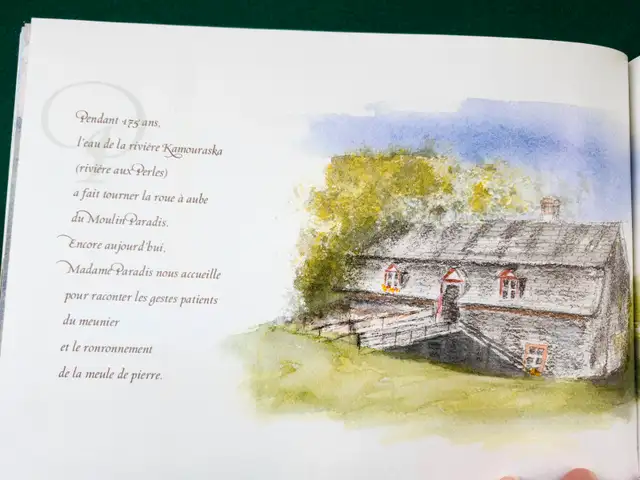 Pendant 175 ans,
l'eau de la rivière Kamouraska
(rivière aux Perles)
a fait tourner la roue à aube
du Moulin Paradis.
Encore aujourd'hui,
Madame Paradis nous accueille
pour raconter les gestes patients
du meunier
et le ronronnement
de la meule de pierre.